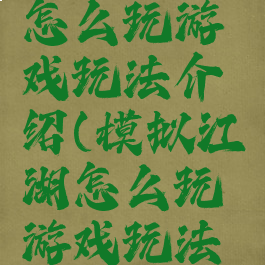 怎么玩游
戏玩法介
绍(模拟江
湖怎么玩
游戏玩法